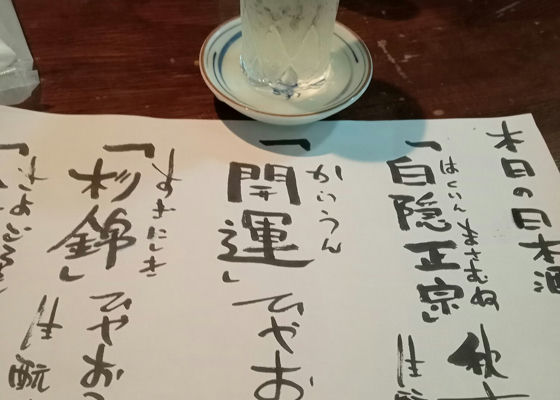 本日の日本酒
はくいんまさむね
「白隠正宗」
秋
生酛
かいうん
「開運」
ひやお
すぎにしき
「杉錦」
ひやお
生酛